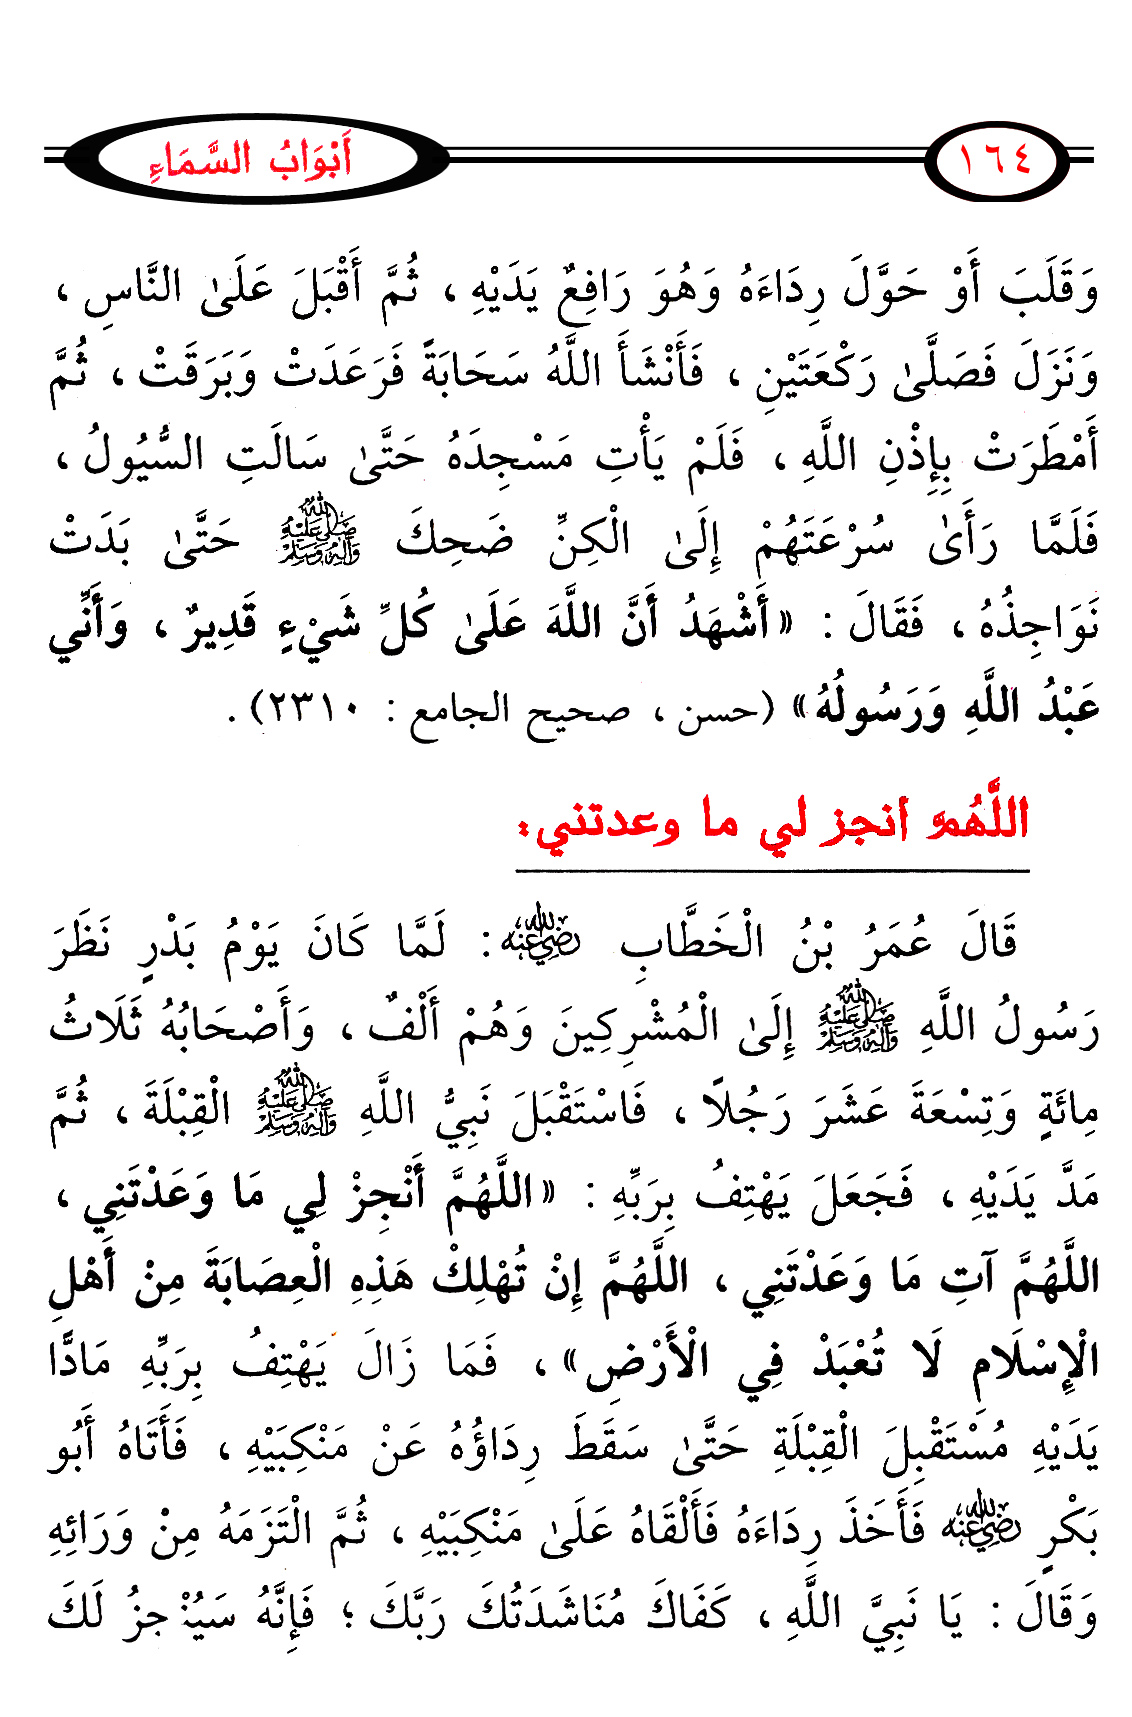 ١٦٤
أَبْوَابُ السَّمَاءِ
وَقَلَبَ أَوْ حَوَّلَ رِدَاءَهُ وَهُوَ رَافِعٌ يَدَيْهِ ، ثُمَّ أَقْبَلَ عَلَىٰ النَّاسِ ،
وَنَزَلَ فَصَلَّىٰ رَكْعَتَيْنِ ، فَأَنْشَأَ اللَّهُ سَحَابَةً فَرَعَدَتْ وَبَرَقَتْ ، ثُمَّ
أَمْطَرَتْ بِإِذْنِ اللَّهِ ، فَلَمْ يَأْتِ مَسْجِدَهُ حَتَّىٰ سَالَتِ السُّيُولُ ،
فَلَمَّا رَأَىٰ سُرْعَتَهُمْ إِلَىٰ الْكِنِّ ضَحِكَ صَلَّى اللَّهُ عَلَيْهِ وَآلِهِ وَسَلَّمَ حَتَّىٰ بَدَتْ
نَوَاجِذُهُ ، فَقَالَ : «أَشْهَدُ أَنَّ اللَّهَ عَلَىٰ كُلِّ شَيْءٍ قَدِيرٌ ، وَأَنِّي
عَبْدُ اللَّهِ وَرَسُولُهُ» (حسن ، صحيح الجامع : ٢٣١٠) .
اللَّهُمَّ أنجز لي ما وعدتني:
قَالَ عُمَرُ بْنُ الْخَطَّابِ رَضِيَ اللَّهُ عَنْهُ : لَمَّا كَانَ يَوْمُ بَدْرٍ نَظَرَ
رَسُولُ اللَّهِ صَلَّى اللَّهُ عَلَيْهِ وَآلِهِ وَسَلَّمَ إِلَىٰ الْمُشْرِكِينَ وَهُمْ أَلْفٌ ، وَأَصْحَابُهُ ثَلَاثُ
مِائَةٍ وَتِسْعَةَ عَشَرَ رَجُلًا ، فَاسْتَقْبَلَ نَبِيُّ اللَّهِ صَلَّى اللَّهُ عَلَيْهِ وَآلِهِ وَسَلَّمَ الْقِبْلَةَ ، ثُمَّ
مَدَّ يَدَيْهِ ، فَجَعَلَ يَهْتِفُ بِرَبِّهِ : «اللَّهُمَّ أَنْجِزْ لِي مَا وَعَدْتَنِي ،
اللَّهُمَّ آتِ مَا وَعَدْتَنِي ، اللَّهُمَّ إِنْ تُهْلِكْ هَذِهِ الْعِصَابَةَ مِنْ أَهْلِ
الْإِسْلَامِ لَا تُعْبَدْ فِي الْأَرْضِ» ، فَمَا زَالَ يَهْتِفُ بِرَبِّهِ مَادًّا
يَدَيْهِ مُسْتَقْبِلَ الْقِبْلَةِ حَتَّىٰ سَقَطَ رِدَاؤُهُ عَنْ مَنْكِبَيْهِ ، فَأَتَاهُ أَبُو
بَكْرٍ رَضِيَ اللَّهُ عَنْهُ فَأَخَذَ رِدَاءَهُ فَأَلْقَاهُ عَلَىٰ مَنْكِبَيْهِ ، ثُمَّ الْتَزَمَهُ مِنْ وَرَائِهِ
وَقَالَ : يَا نَبِيَّ اللَّهِ ، كَفَاكَ مُنَاشَدَتُكَ رَبَّكَ ؛ فَإِنَّهُ سَيُنْجِزُ لَكَ